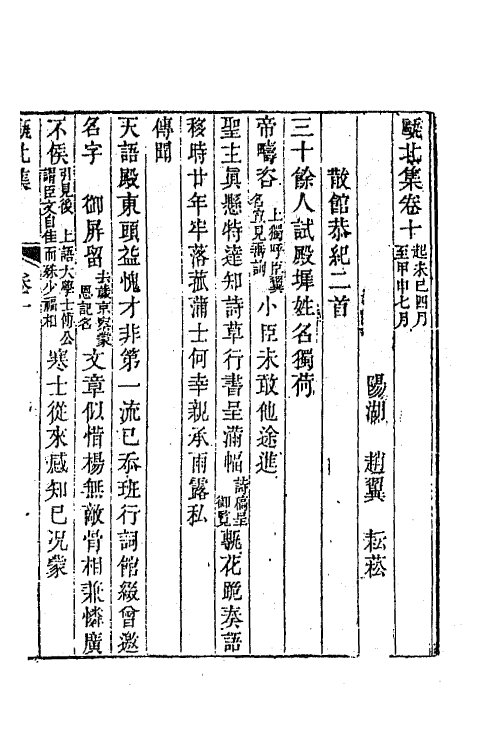 甌北集卷十起未巳四月至甲申七月
陽湖 趙翼 耘菘
散館恭紀二首
三十餘人試殿墀姓名獨荷
帝疇咨上獨呼臣翼名宣見垂詢小臣未敢他途進
聖主眞懸特達知詩草行書呈滿幅詩稿呈御覽甎花跪奏語
移時廿年牢落菰蒲士何幸親承雨露私
傳聞
天語殿東頭益愧才非第一流已忝班行詞館綴曾邀
名字 御屏留去歲京察蒙恩記名文章似惜楊無敵骨相兼憐廣
不侯引見後 上語大學士傅公謂臣文自佳而殊少福相寒士從來感知已况蒙
甌北集
卷十